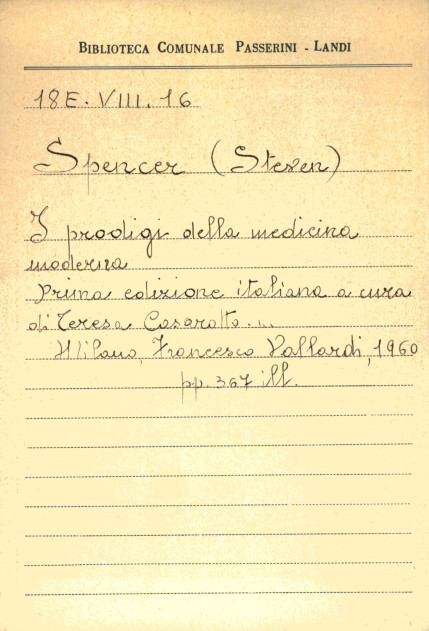 BIBLIOTECA COMUNALE PASSERINI - LANDI
18E. VIII. 16
Spencer (Steven)
I prodigi della medicina
moderna
Prima edizione italiana a cura
di Teresa Casaratto.
Milano, Francesco Vallardi, 1960
pp. 367 ill.